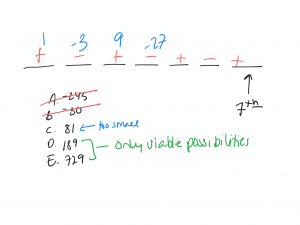 1 -3 9 -27
+ - + - + - +
A. -245
B. -30
C. 81 ← too small
D. 189
E. 729
only viable possibilities
7th